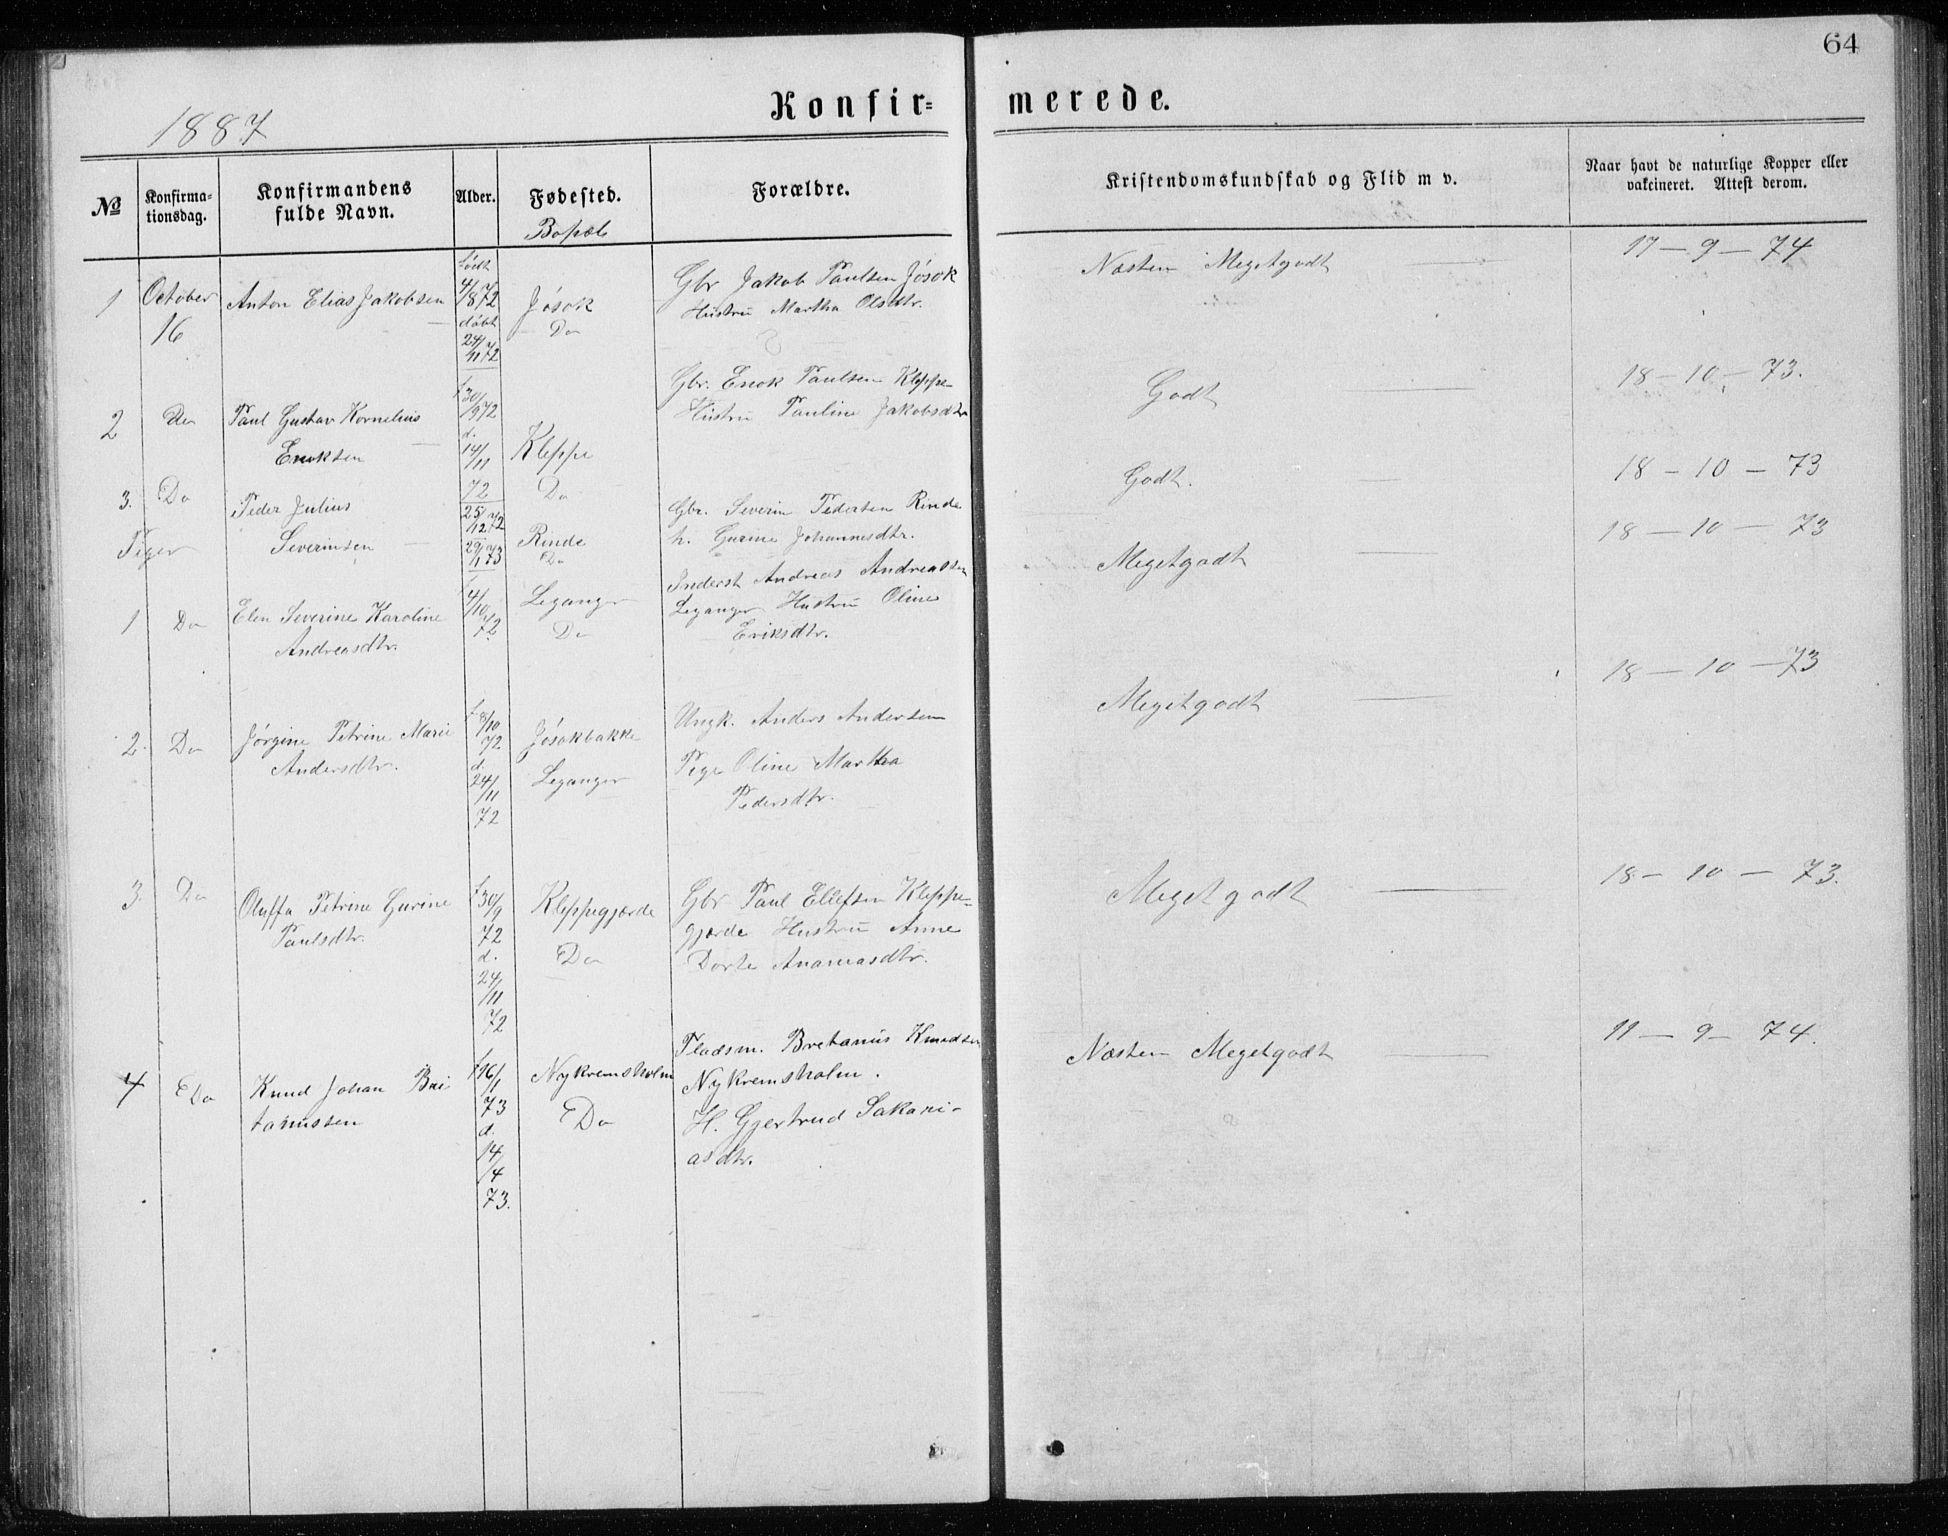 64
1887
Konfir= merede.
№ Konfirma-tionsdag. Konfirmandens fulde Navn. Alder. Fødested. Forældre. Kristendomskundskab og Flid m v. Naar havt de naturlige Kopper eller vakcineret. Attest derom.
Bopæl
1 October 16 Anton Elias Jakobsen født 4/8 72 døbt 24/11 72 Jøsok Do
Gbr Jakob Paulsen Jøsok
Hustru Martha Olsdtr.
Næsten Megetgodt 17 - 9 - 74
2 Do Paul Gustav Kornelius
Enoksen
f 30/9 72 d. 14/11 72 Kleppe Do
Gbr. Enok Paulsen Kleppe
Hustru Pauline Jakobsdtr
Godt 18 - 10 - 73.
3. Do Peder Julius
Severinsen
25/12 72 29/1 73 Rinde Do
Gbr. Severin Pedersen Rinde
h. Gurine Johannesdtr.
Godt. 18 - 10 - 73
Piger
1 Do Elen Severine Karoline
Andreasdtr.
f 4/10 72 Leganger Do
Inderst Andreas Andreassen
Leganger Hustru Oline
Eriksdtr.
Megetgodt 18 - 10 - 73
2. Do Jørgine Petrine Marie
Andersdtr.
f 8/10 72 d. 24/11 72 Jøsokbakke Leganger
Ungk. Anders Andersen
Pige Oline Martha
Pedersdtr.
Megetgodt 18 - 10 - 73
3. Do Oluffa Petrine Gurine
Paulsdtr.
f 30/9 72 d. 24/11 72 Kleppegjærde Do
Gbr Paul Ellefsen Kleppe=
gjærde Hustru Anne
Dorte Ananiasdtr.
Megetgodt 18 - 10 - 73.
4 Do Knud Johan Bri
tanussen
f 16/1 73 d. 14/4 73. Nykremsholm Do
Pladsm. Bretanus Knudsen
Nykremsholm.
H. Gjertrud Sakari-
asdtr.
Næsten Megetgodt 11 - 9 - 74.